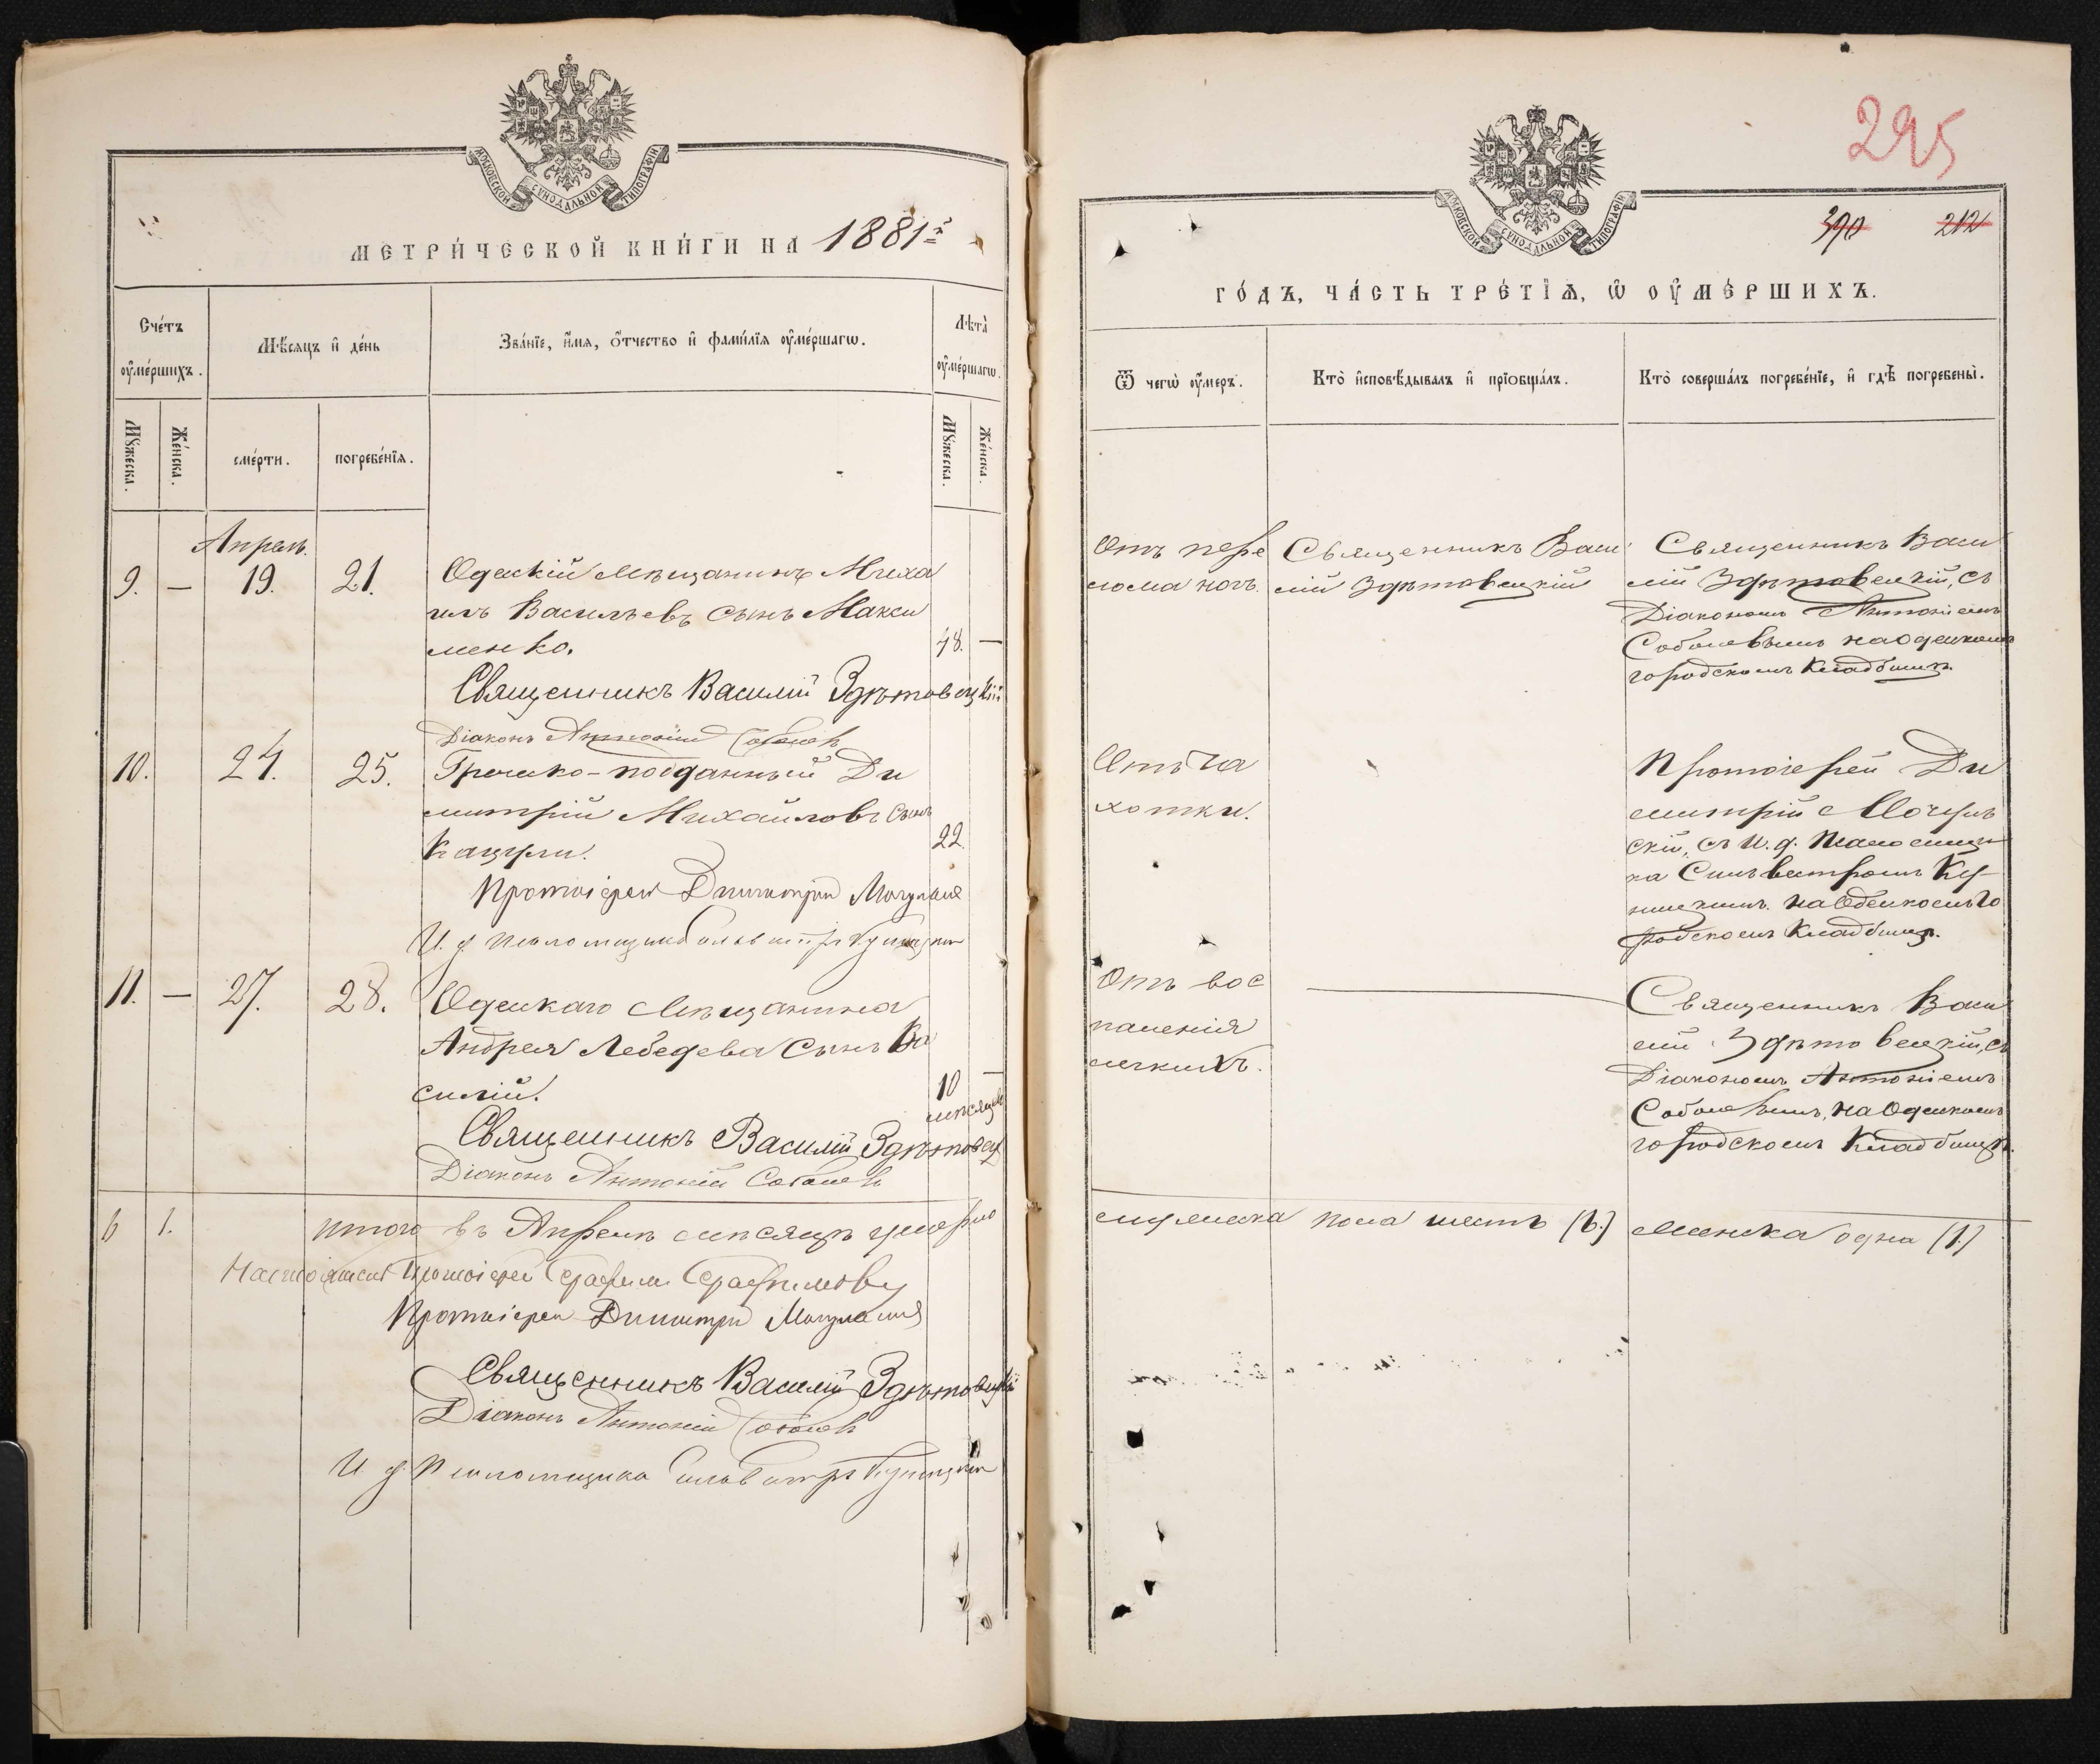 МОСКОВСКОЙ СѴНОДАЛЬНОЙ ТИПОГРАФІИ
МЕТРИ́ЧЕСКОЙ КНИ́ГИ НА 1881 г.
Сче́тъ ᲂу҆ме́ршихъ.
Мѣ́сяцъ и҆ де́нь
Зва́нїе, и҆́мѧ, ѻ҆́тчество и҆ фами́лїѧ ᲂу҆ме́ршагѡ.
Лѣта̀ ᲂу҆ме́ршагѡ.
Мꙋ́жеска.
Же́нска.
сме́рти.
погребе́нїѧ.
Мꙋ́жеска.
Же́нска.
Апрель.
9. — 19. 21. Одескій Мѣщанинъ Миха
илъ Васильевъ сынъ Макси
менко. 48. —
Священникъ Василій Здѣтовецкій
Діаконъ Антоній Соболев
10. 24. 25. Греческо-подданный Ди
митрій Михайловъ сынъ
Кацули. 22.
Протоіерей Димитрій
И. д. псаломщика Сильвестръ
11. — 27. 28. Одескаго Мѣщанина
Андрея Лебедева сынъ Ва
силій. 10 —
мѣсяцев
Священникъ Василій Здѣтовец
Діаконъ Антоній Соболев
6 1. Итого въ Апрелѣ мѣсяцѣ умерло
Настоятель Протоіерей Серафим Серафимов
Протоіерей Димитрій
Священникъ Василій Здѣтовецкій
Діаконъ Антоній Соболев
И д Псаломщика Сильвестръ
295
МОСКОВСКОЙ СѴНОДАЛЬНОЙ ТИПОГРАФІИ
390 212
ГО́ДЪ, ЧА́СТЬ ТРЕ́ТЇѦ, Ѡ ОУ҆МЕ́РШИХЪ.
Ѿ чегѡ̀ ᲂу҆́меръ.
Кто̀ и҆сповѣ́дывалъ и҆ прїѡбща́лъ.
Кто̀ соверша́лъ погребе́нїе, и҆ гдѣ̀ погребены̀.
Отъ пере
лома ногъ.
Священникъ Васи
лій Здѣтовецкій
Священникъ Васи
лій Здѣтовецкій, съ
Діакономъ Антоніемъ
Соболевымъ на Одескомъ
городскомъ Кладбищѣ.
Отъ ча
хотки.
Протоіерей Ди
митрій
скій, съ И. д. Псаломщи
ка Сильвестромъ
на Одескомъ го
родскомъ Кладбищѣ.
Отъ вос
паленія
легкихъ.
Священникъ Васи
лій Здѣтовецкій, съ
Діакономъ Антоніемъ
Соболевымъ, на Одескомъ
городскомъ Кладбищѣ.
мужеска пола шесть (6.) женска одна (1.)